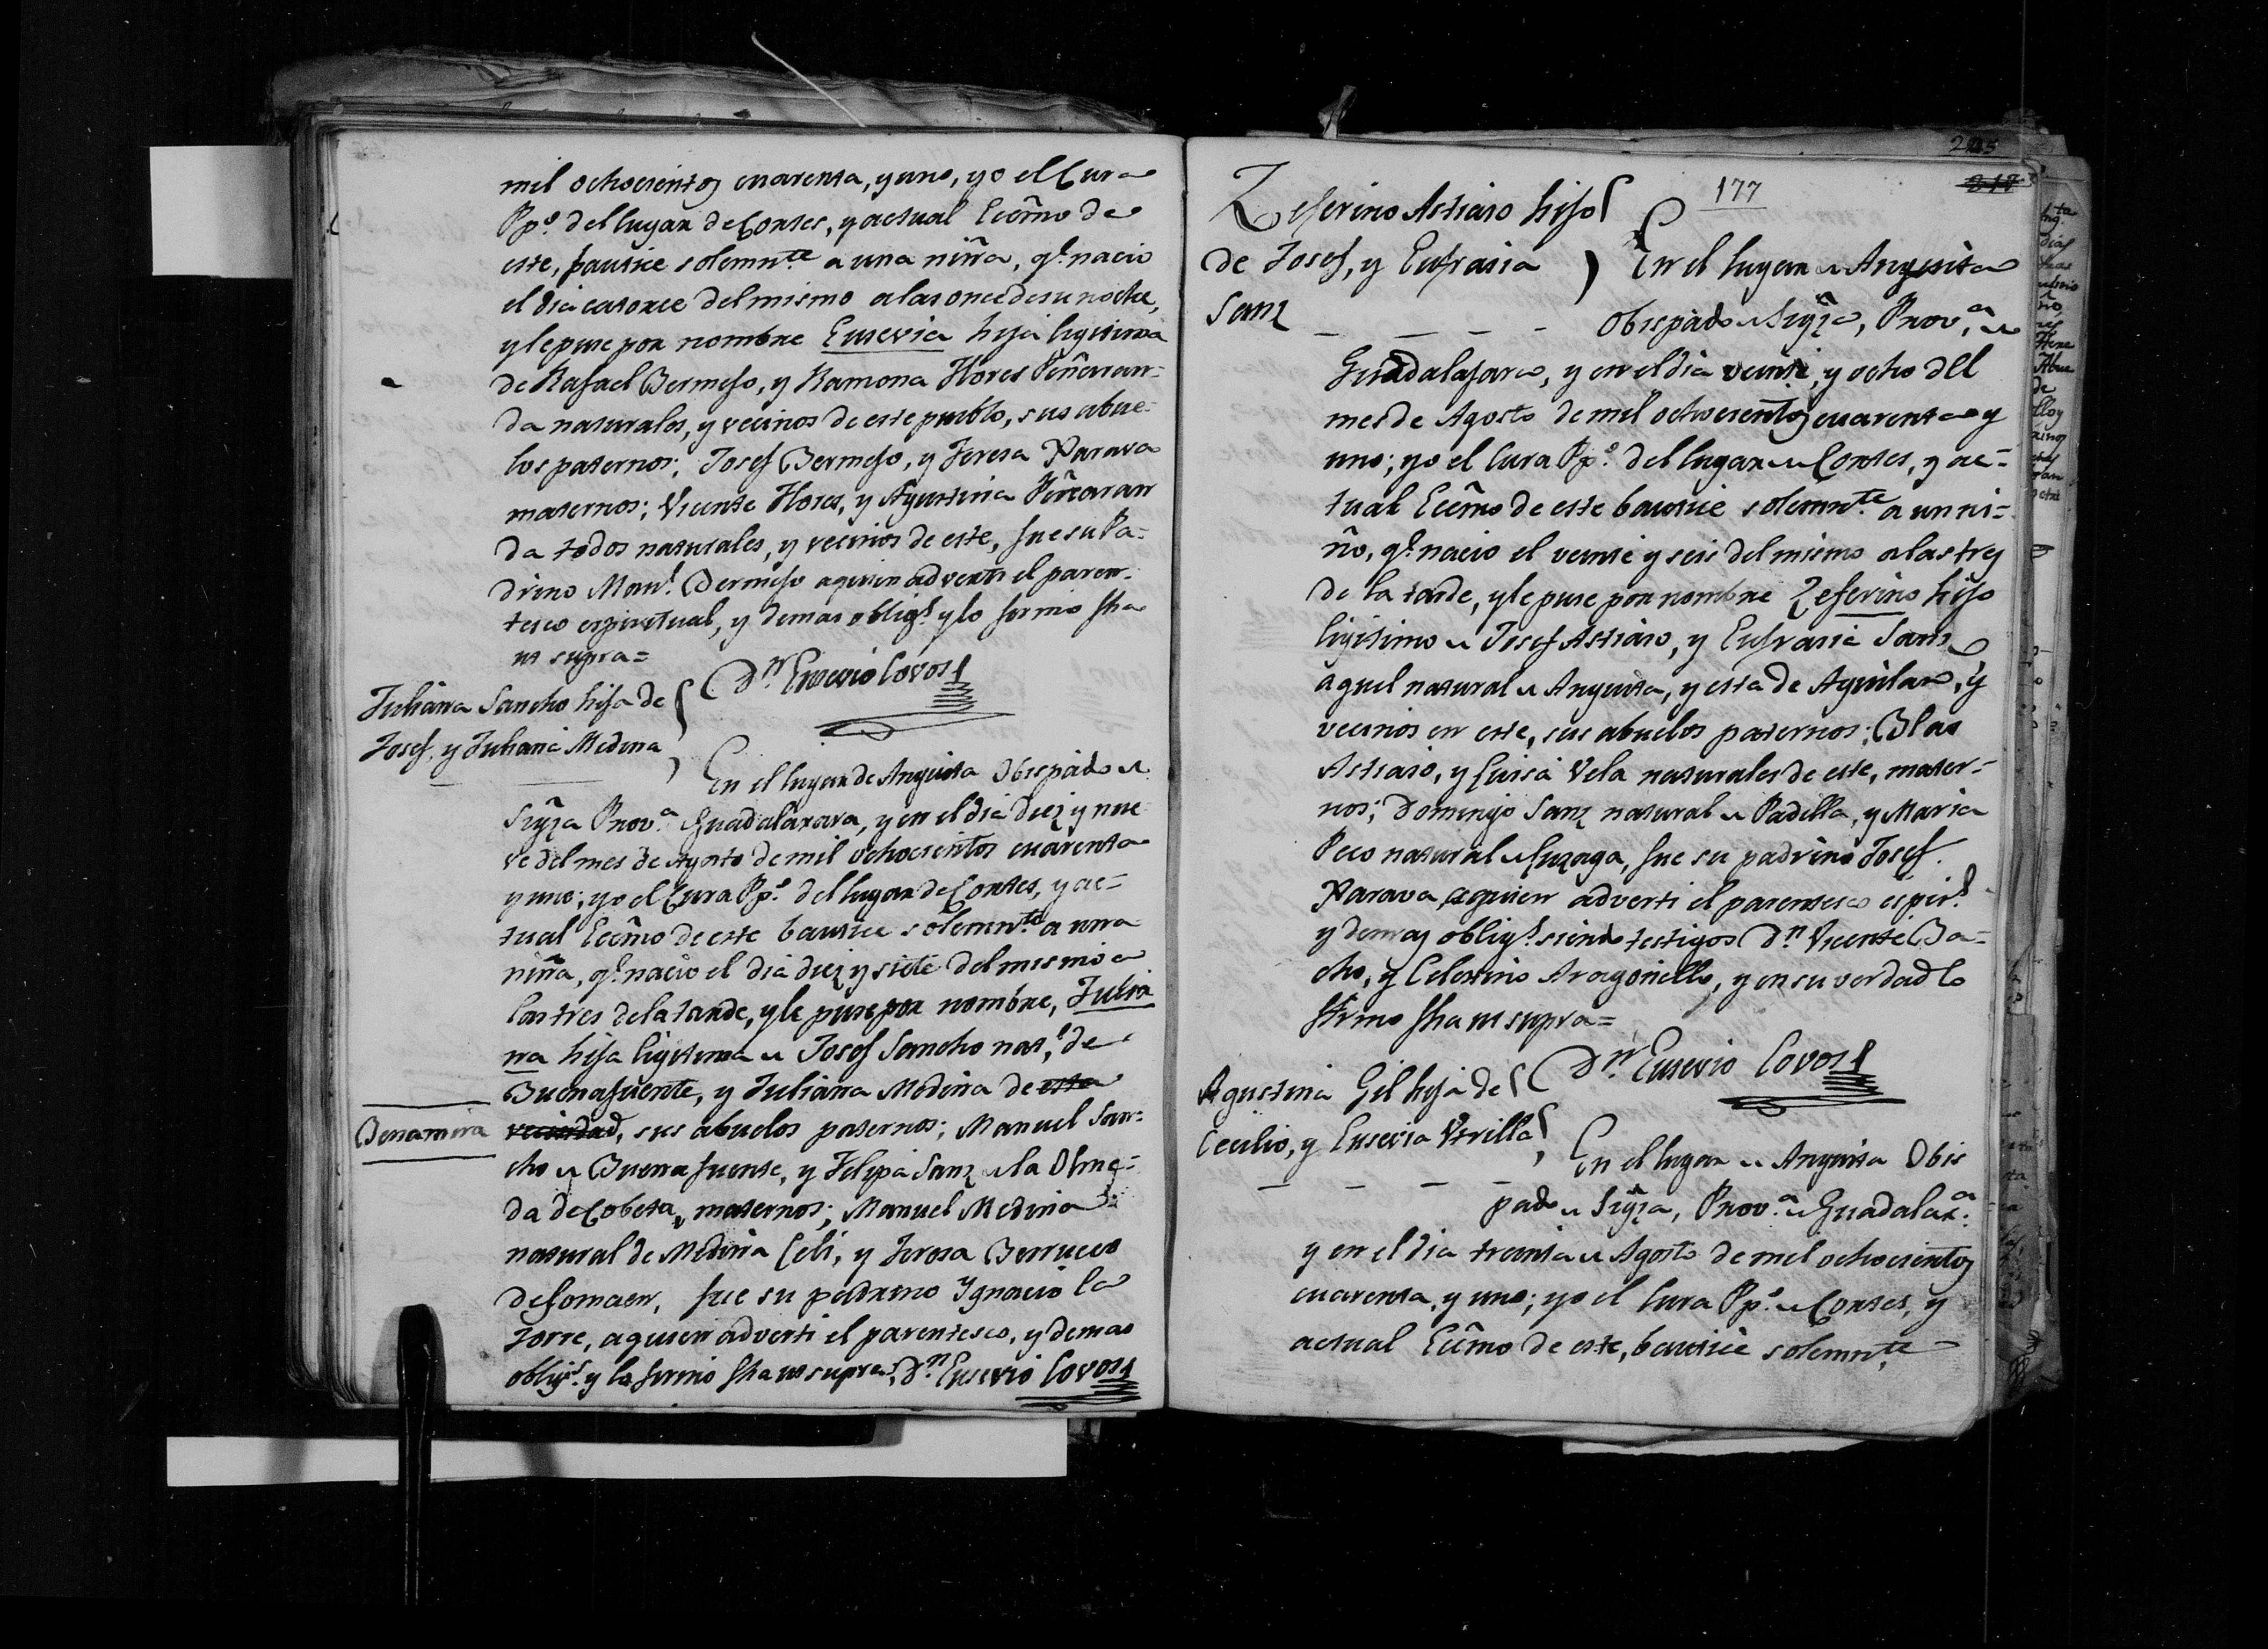 mil ochocientos cuarenta, y uno, yo el Cura
Ppº. del lugar de Cortes, y actual Ecmô de
este, bautice solemnte. a una niña, q.e nacio
el dia catorce del mismo a las once de su noche,
y le puse por nombre Eusevia hija ligitima
de Rafael Bermejo, y Ramona Flores Peñaran-
da naturales, y vecinos de este pueblo, sus abue-
los paternos; Josef Bermejo, y Teresa Xarava
maternos; Vicente Flores, y Agustina Peñaran
da todos naturales, y vecinos de este, fue su Pa=
drino Man.l Bermejo a quien adverti el paren-
tesco espiritual, y demas oblig.s y lo firmo fha
ut supra=
Dn. Eusevio Covos
Juliana Sancho hija de
Josef. y Juliana Medina
En el lugar de Anguita Obispado de
Sigza Prov.a Guadalaxara, y en el dia diez y nue
ve del mes de Agosto de mil ochocientos cuarenta
y uno; yo el Cura Ppº. del lugar de Cortes, y ac=
tual Ecmô de este bautice solemnte. a una
niña, q.e nacio el dia diez y siete del mismo a
las tres de la tarde, y le puse por nombre, Julia
na hija ligitima de Josef Sancho nat.l de
Buenafuente, y Juliana Medina de esta
Benamira
vecindad, sus abuelos paternos; Manuel San-
cho de Buenafuente, y Felipa Sanz de la Olme-
da de Cobeta, maternos; Manuel Medina
natural de Medina Celi, y Teresa Berrueco
de Somaen, fue su padrino Ygnacio la
Torre, a quien adverti el parentesco, y demas
oblig.s y lo firmo fha ut supra= Dn. Eusevio Covos
205
217
177
Zeferino Astiaso hijo
de Josef, y Eufrasia
Sanz
En el lugar de Anguita
Obispado de Sigza, Prov.a de
Guadalajara, y en el dia veinte, y ocho del
mes de Agosto de mil ochocientos cuarenta y
uno; yo el Cura Ppº. del lugar de Cortes, y ac=
tual Ecmô de este bautice solemnte. a un ni=
ño, q.e nacio el veinte y seis del mismo a las tres
de la tarde, y le puse por nombre Zeferino hijo
ligitimo de Josef Astiaso, y Eufrasia Sanz
aquel natural de Anguita, y esta de Aguilar, y
vecinos en este, sus abuelos paternos; Blas
Astiaso, y Luisa Vela naturales de este, mater-
nos; Domingo Sanz natural de Padilla, y Maria
Peco natural de Luzaga, fue su padrino Josef.
Xarava, a quien adverti el parentesco espir.l
y demas oblig.s siendo testigos Dn. Vicente Ba=
cho, y Celestino Aragoncillo, y en su verdad lo
firmo fha ut supra=
Dn. Eusevio Covos
Agustina Gil hija de
Cecilio, y Eusevia Utrilla
En el lugar de Anguita Obis
pado de Sigza, Prov.a de Guadalax.a
y en el dia treinta de Agosto de mil ochocientos
cuarenta, y uno; yo el Cura Ppº. de Cortes, y
actual Ecmô de este, bautice solemnte.